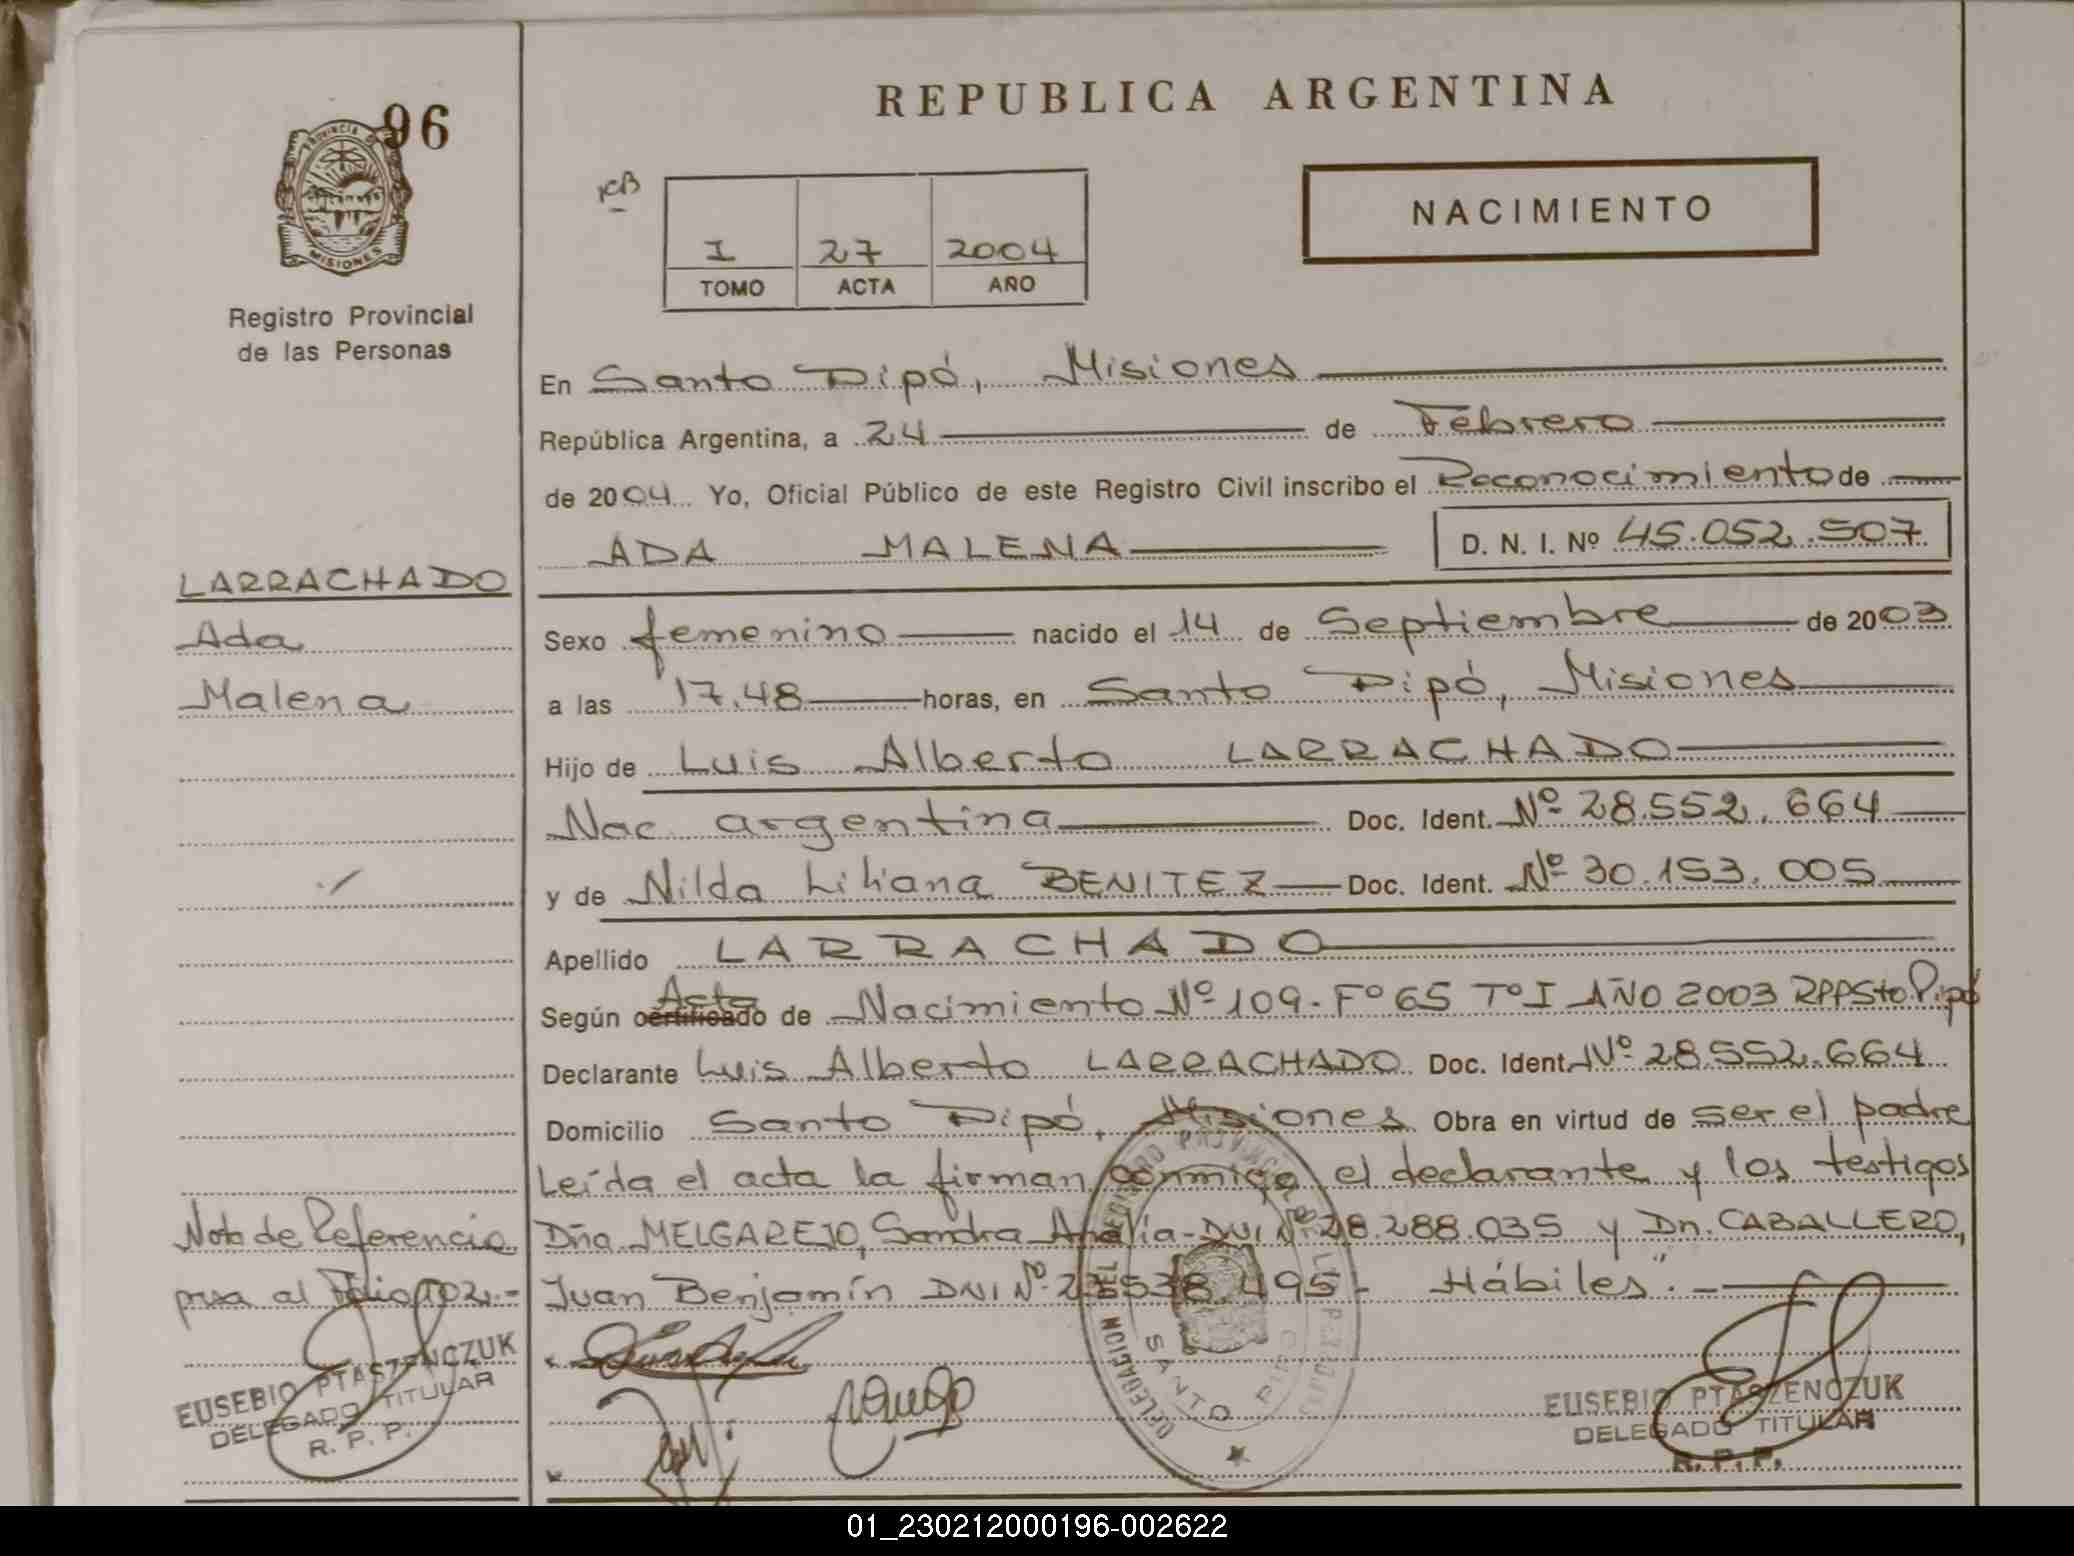 96
PROVINCIA DE
MISIONES
Registro Provincial
de las Personas
REPUBLICA ARGENTINA
NACIMIENTO
I 27 2004
TOMO ACTA AÑO
En Santo Pipó, Misiones
República Argentina, a 24 de Febrero
de 2004 Yo, Oficial Público de este Registro Civil inscribo el Reconocimiento de
ADA MALENA D. N. I. Nº 45.052.507
LARRACHADO
Ada
Malena
Sexo femenino nacido el 14 de Septiembre de 2003
a las 17.48 horas, en Santo Pipó, Misiones
Hijo de Luis Alberto LARRACHADO
Nac. argentina Doc. Ident. Nº 28.552.664
y de Nilda Liliana BENITEZ Doc. Ident. Nº 30.153.005
Apellido LARRACHADO
Acta
Según certificado de Nacimiento Nº 109- Fº 65 Tº I AÑO 2003 RPPSto.Pipó
Declarante Luis Alberto LARRACHADO Doc. Ident. Nº 28.552.664
Domicilio Santo Pipó, Misiones Obra en virtud de ser el padre
Leída el acta la firman conmigo el declarante y los testigos
Dña. MELGAREJO, Sandra Analia- DNI Nº 28.288.035 y Dn. CABALLERO,
Juan Benjamín DNI Nº 538.495- Hábiles".-
Nota de Referencia
pasa al Folio 102.-
EUSEBIO PTASZENCZUK
DELEGADO TITULAR
R. P. P.
DELEGACION DEL REGISTRO PROVINCIAL
SANTO PIPO
EUSEBIO PTASZENCZUK
DELEGADO TITULAR
R. P. P.
01_230212000196-002622